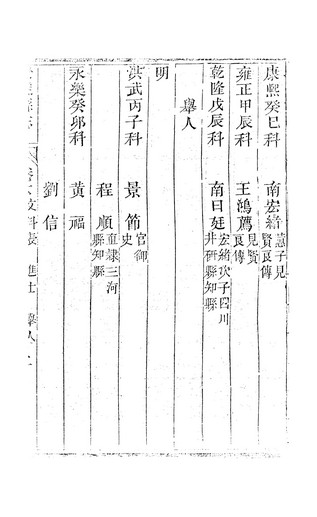 康熙癸巳科 南宏緒 蕙子見賢良傳
雍正甲辰科 王鴻薦 見賢良傳
乾隆戊辰科 南日廷 宏緒次子四川井研縣知縣
舉人
明
洪武丙子科 景節 官御史
程順 直隷三河縣知縣
永樂癸卯科 黃福
劉信
卷六 文科表 進士 舉人